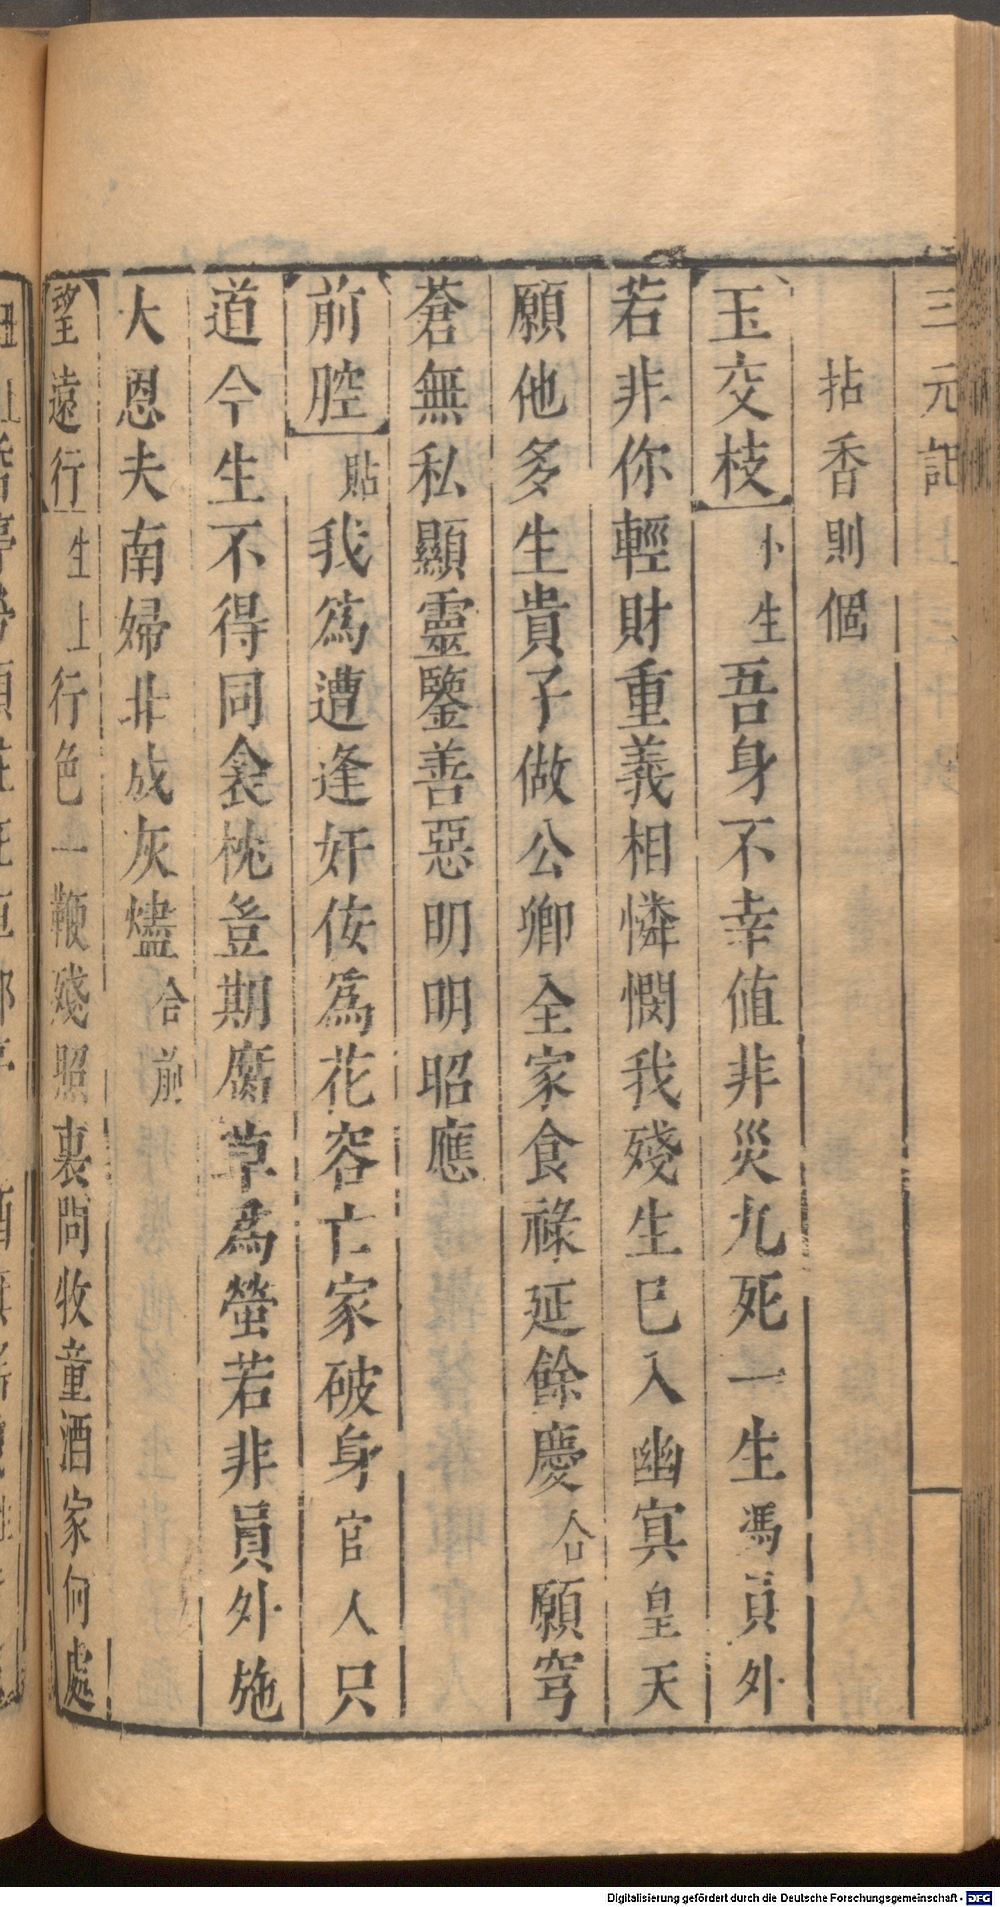 三元記上
拈香則個
玉交枝 小生 吾身不幸值非災九死一生馮員外
若非你輕財重義相憐憫我殘生已入幽冥皇天
願他多生貴子做公卿全家食祿延餘慶 合 願穹
蒼無私顯靈鑒善惡明明昭應
前腔 貼 我爲遭逢奸佞爲花容亡家破身官人只
道今生不得同衾枕豈期腐草爲螢若非員外施
大恩夫南婦北成灰燼 合前
望遠行 生上 行色一鞭殘照裏問牧童酒家何處
Digitalisierung gefördert durch die Deutsche Forschungsgemeinschaft - DFG